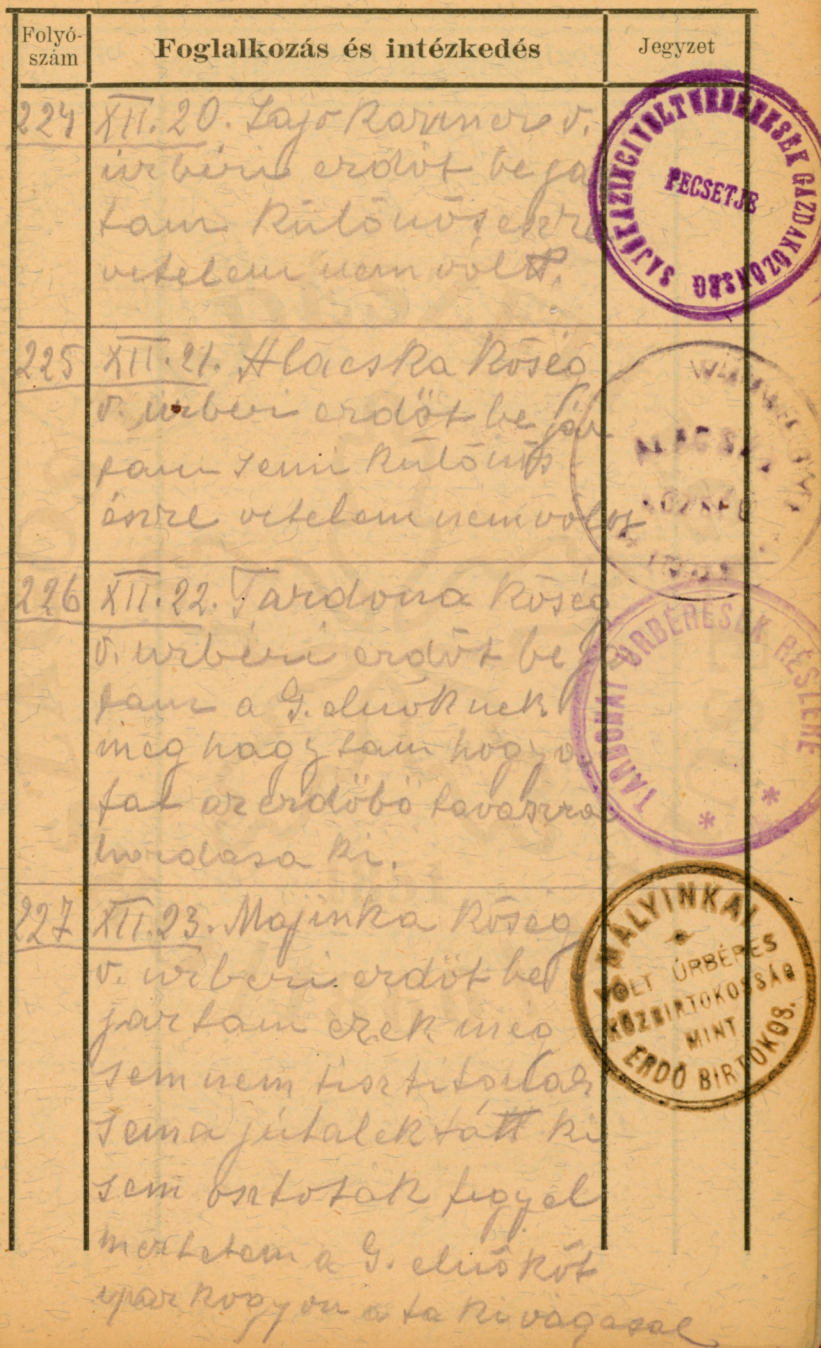 Folyó-
szám
Foglalkozás és intézkedés
Jegyzet
224 XII. 20. Sajó v.
úrbéri erdőt beja
tam különös észre
vetelem nem vólt.
SAJÓKAZINCI VOLT ÚRBÉRESEK GAZDAKÖZÖNSÉG
PECSETJE
225 XII. 21. Alacska Kőség
v. urbéri erdőt be jár
tam semi különös
észre vetelem nem vólt
ALACSKA
KÖZSÉG
226 XII. 22. Tardona Kőség
v. urbéri erdőt be
tam a G. elnöknek
meg hagytam hogy a
fát az erdőbő tavaszra
hordasa ki.
TARDONAI ÚRBÉRESEK RÉSZÉRE
227 XII. 23. Majinka Kőség
v. urberi erdőt be
jartam ezek még
sem nem tisztitottak
sem a jútalek fátt ki
sem osztoták figyel
meztetem a G. elnököt
hogy a fa ki vágásal
MÁLYINKAI
VOLT ÚRBÉRES
KÖZBIRTOKOSSÁG
MINT
ERDŐ BIRTOKOS.